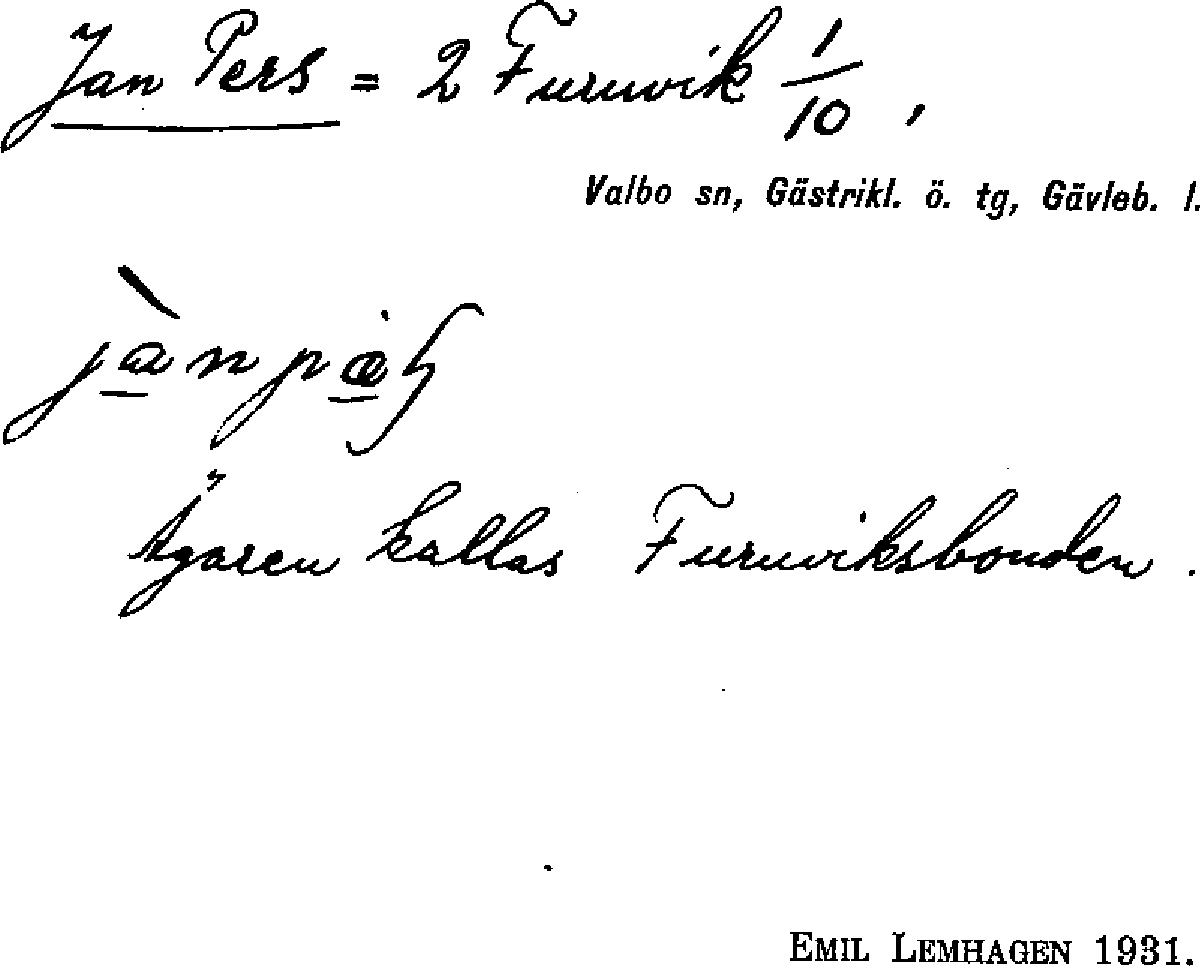 Jan Pers = 2 Furuvik 1/10,
Valbo sn, Gästrikl. ö. tg, Gävleb. l.
Ägaren kallas Furuviksbonden.
EMIL LEMHAGEN 1931.